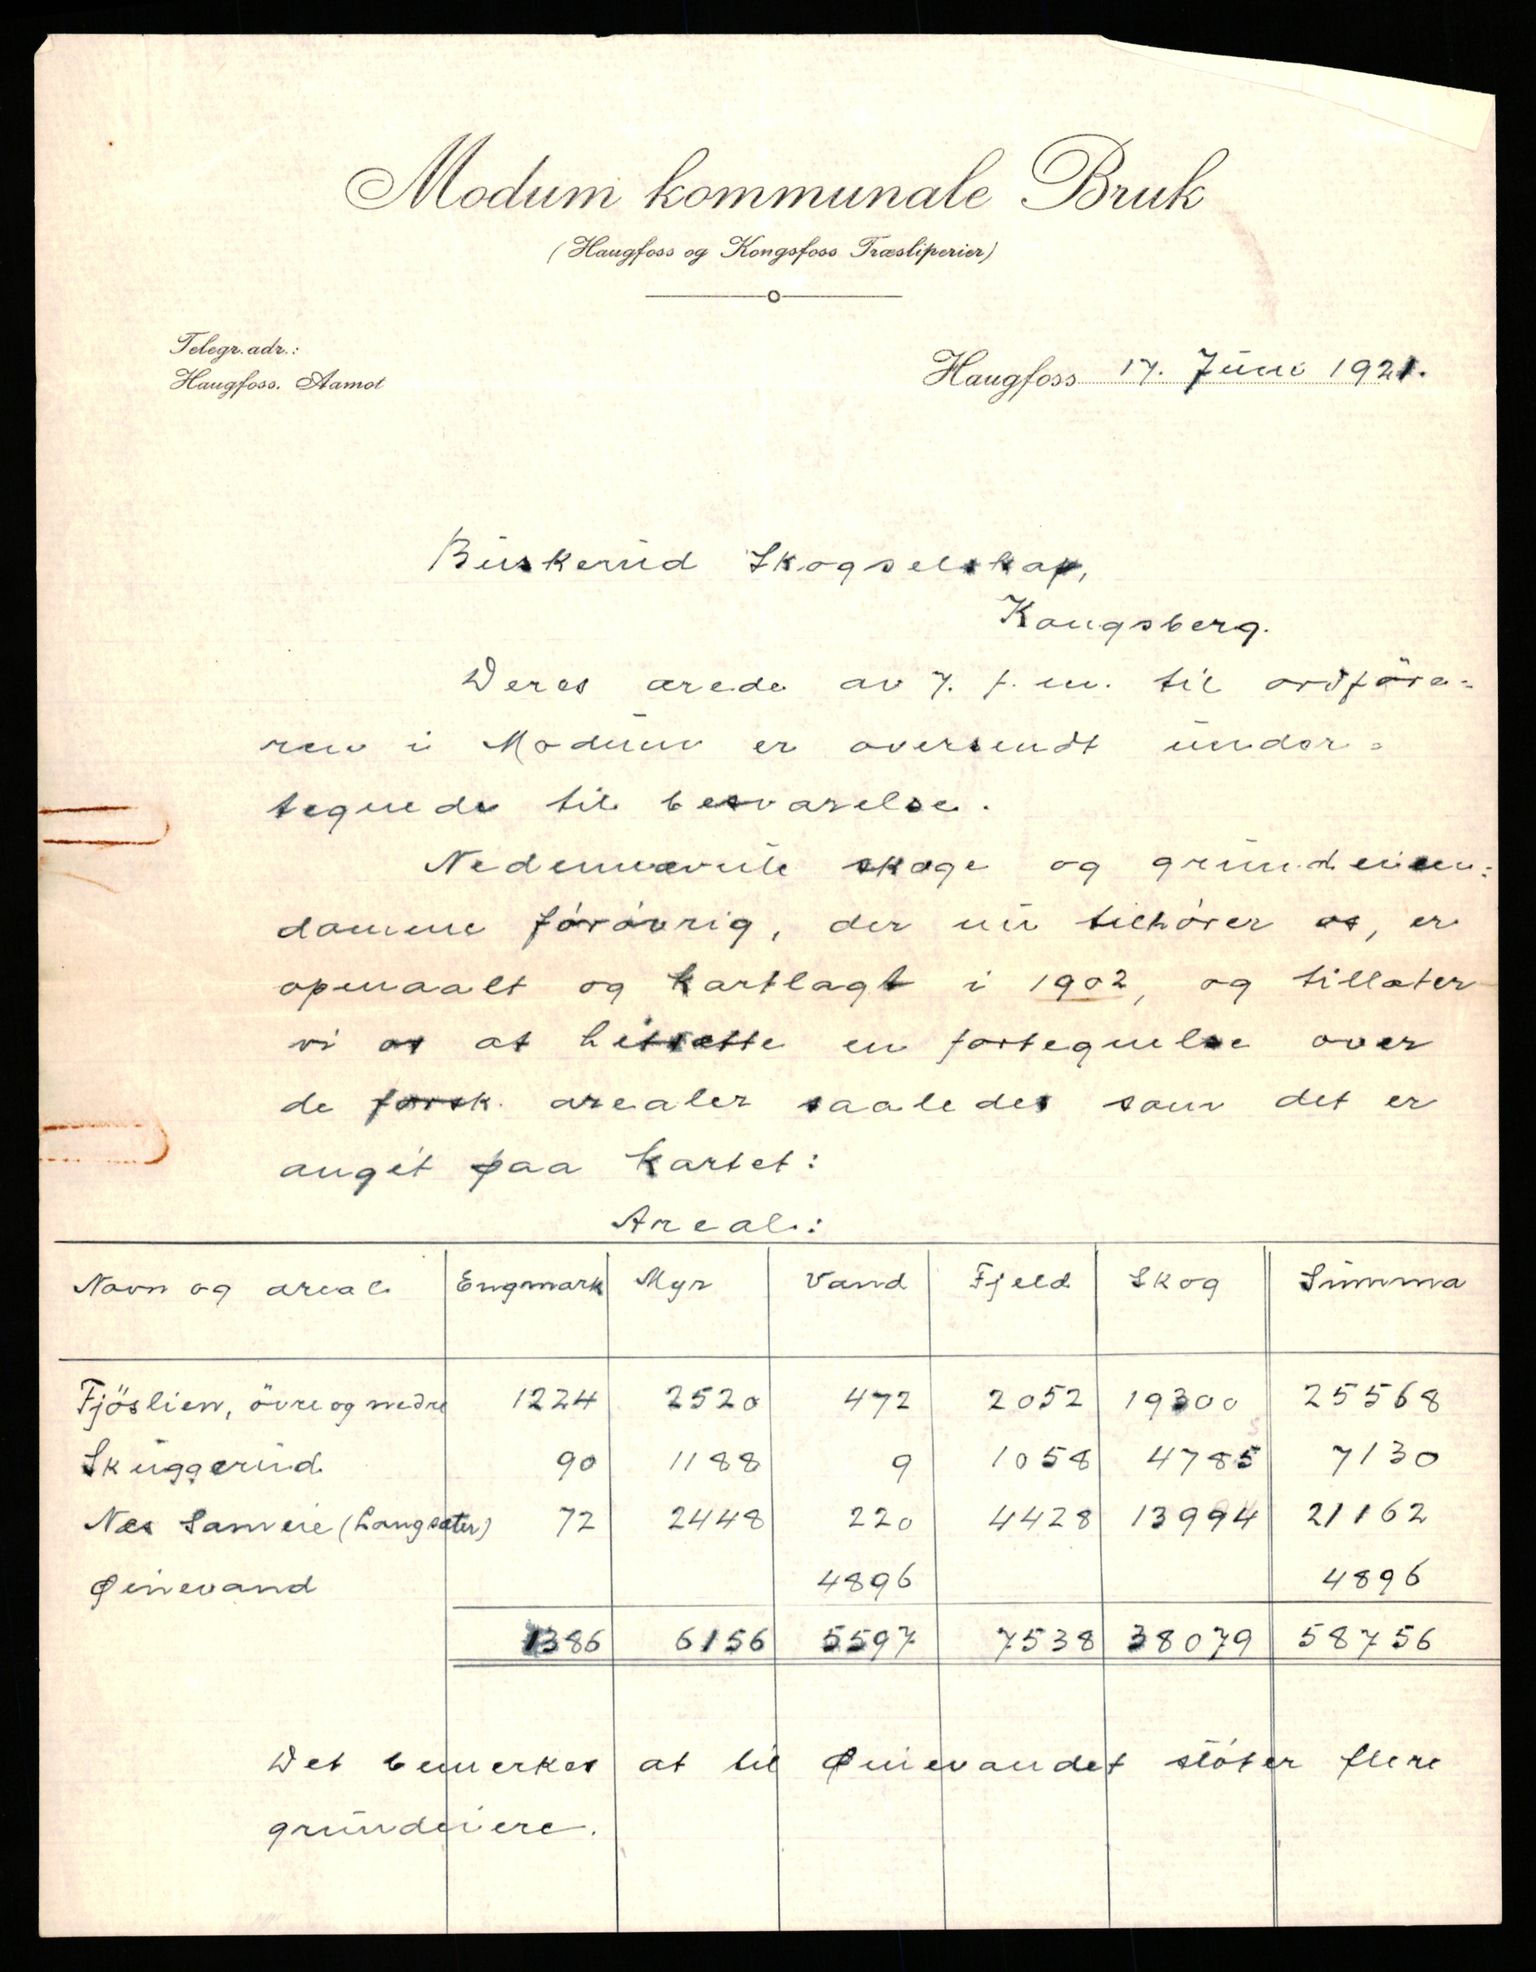 Modum kommunale Bruk
(Haugfoss og Kongsfoss Træsliperier)
Telegr.adr.:
Haugfoss. Aamot
Haugfoss 17. Juni 1921.
Buskerud Skogselskap,
Kongsberg.
Deres ærede av 7. f. m. til ordföre=
ren i Modum er oversendt under=
tegnede til besvarelse.
Nedennævnte skoge og grundeien=
domme forövrig, der nu tilhörer os, er
opmaalt og kartlagt i 1902, og tillater
vi os at hitsætte en fortegnelse over
de forsk. arealer saaledes som det er
angit paa kartet:
Areal:
Navn og areal Engmark Myr Vand Fjeld Skog Summa
Fjöslien, övre og nedre 1224 2520 472 2052 19300 25568
Skuggerud 90 1188 9 1058 4785 7130
Næs Sameie (Langsæter) 72 2448 220 4428 13994 21162
Øinevand 4896 4896
1386 6156 5597 7538 38079 58756
Det bemerkes at til Øinevandet stöter flere
grundeiere.